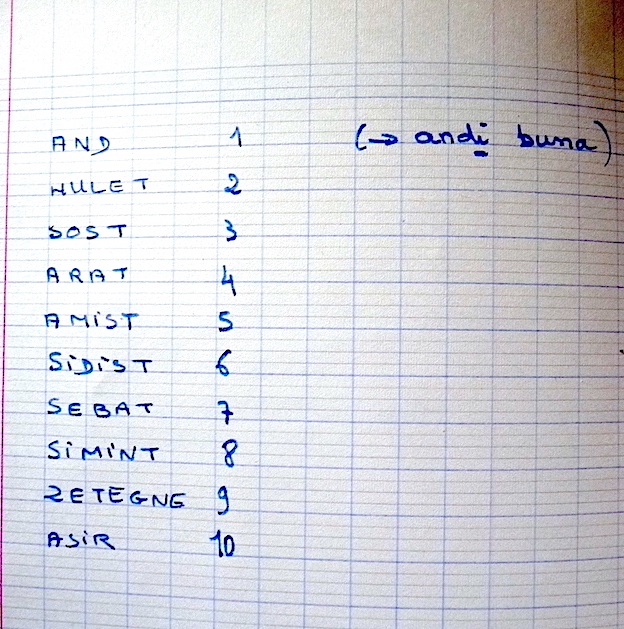 AND 1 (→ andi buna)
HULET 2
SOST 3
ARAT 4
AMiST 5
SiDiST 6
SEBAT 7
SiMiNT 8
ZETEGNE 9
ASiR 10